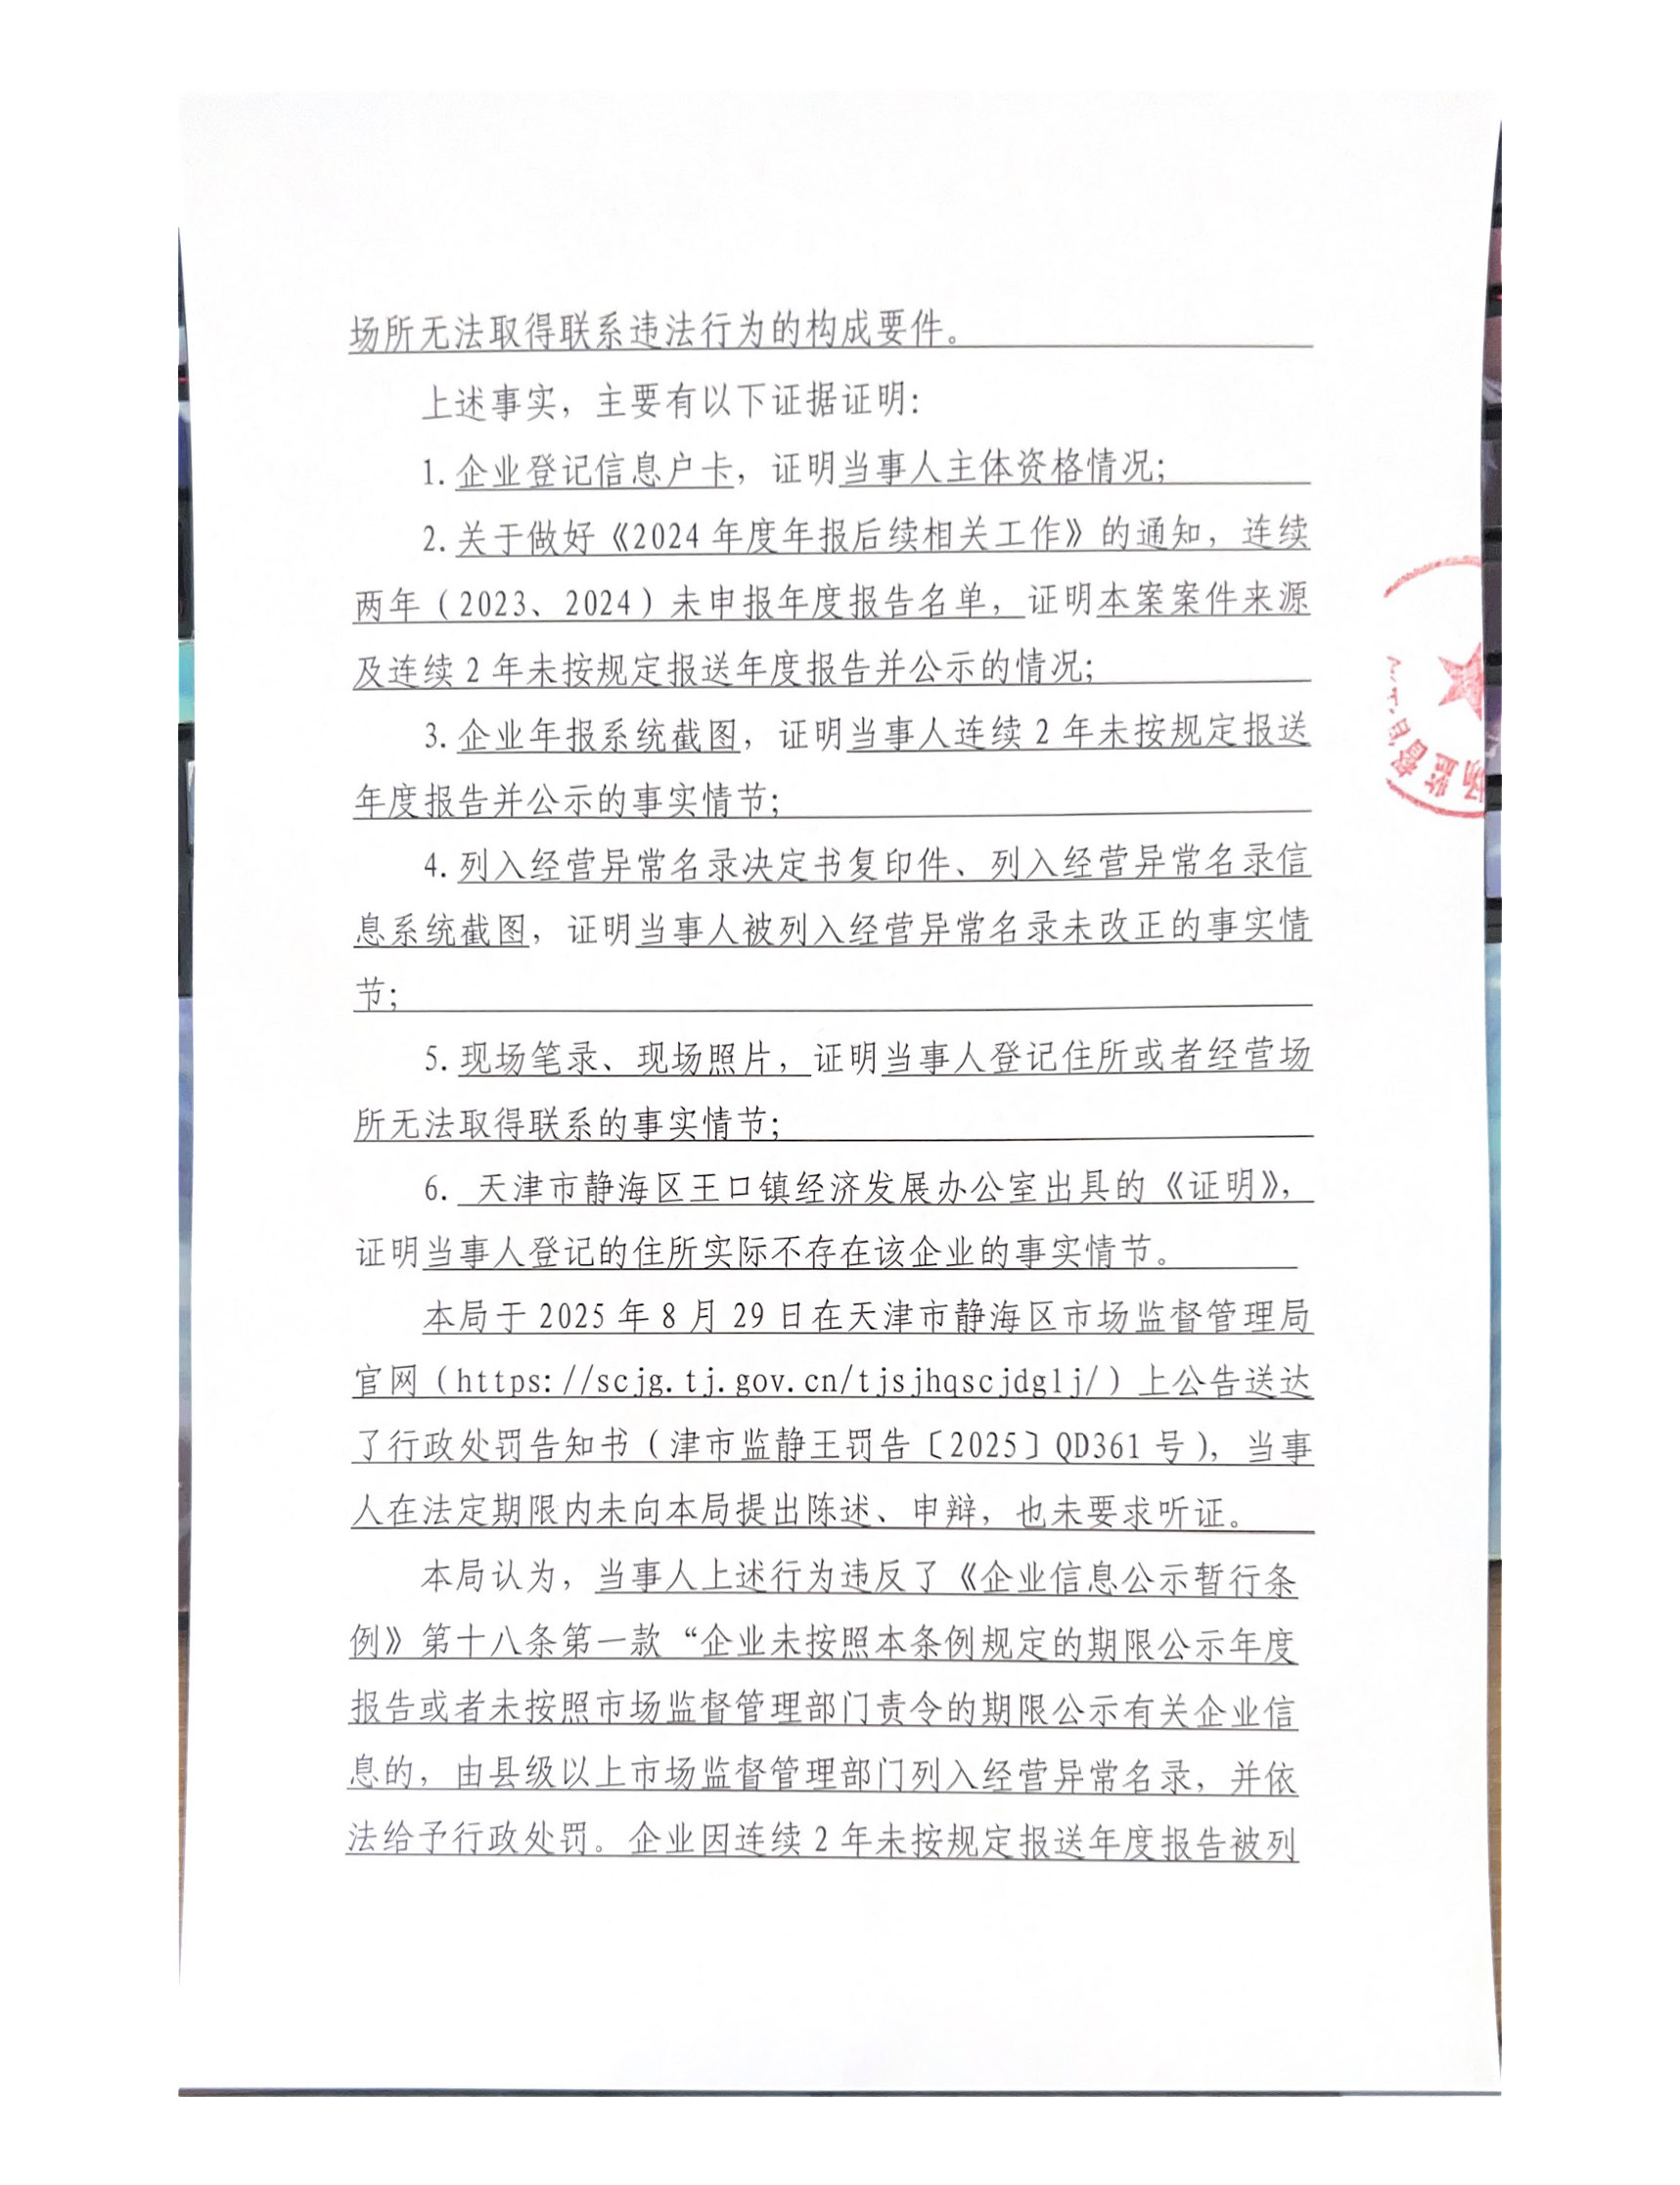 场所无法取得联系违法行为的构成要件。
上述事实，主要有以下证据证明：
1.企业登记信息户卡，证明当事人主体资格情况；
2.关于做好《2024年度年报后续相关工作》的通知，连续
两年（2023、2024）未申报年度报告名单，证明本案案件来源
及连续2年未按规定报送年度报告并公示的情况；
3.企业年报系统截图，证明当事人连续2年未按规定报送
年度报告并公示的事实情节；
4.列入经营异常名录决定书复印件、列入经营异常名录信
息系统截图，证明当事人被列入经营异常名录未改正的事实情
节；
5.现场笔录、现场照片，证明当事人登记住所或者经营场
所无法取得联系的事实情节；
6. 天津市静海区王口镇经济发展办公室出具的《证明》，
证明当事人登记的住所实际不存在该企业的事实情节。
本局于2025年8月29日在天津市静海区市场监督管理局
官网（https://scjg.tj.gov.cn/tjsjhqscjdglj/）上公告送达
了行政处罚告知书（津市监静王罚告〔2025〕QD361号），当事
人在法定期限内未向本局提出陈述、申辩，也未要求听证。
本局认为，当事人上述行为违反了《企业信息公示暂行条
例》第十八条第一款“企业未按照本条例规定的期限公示年度
报告或者未按照市场监督管理部门责令的期限公示有关企业信
息的，由县级以上市场监督管理部门列入经营异常名录，并依
法给予行政处罚。企业因连续2年未按规定报送年度报告被列
场监督